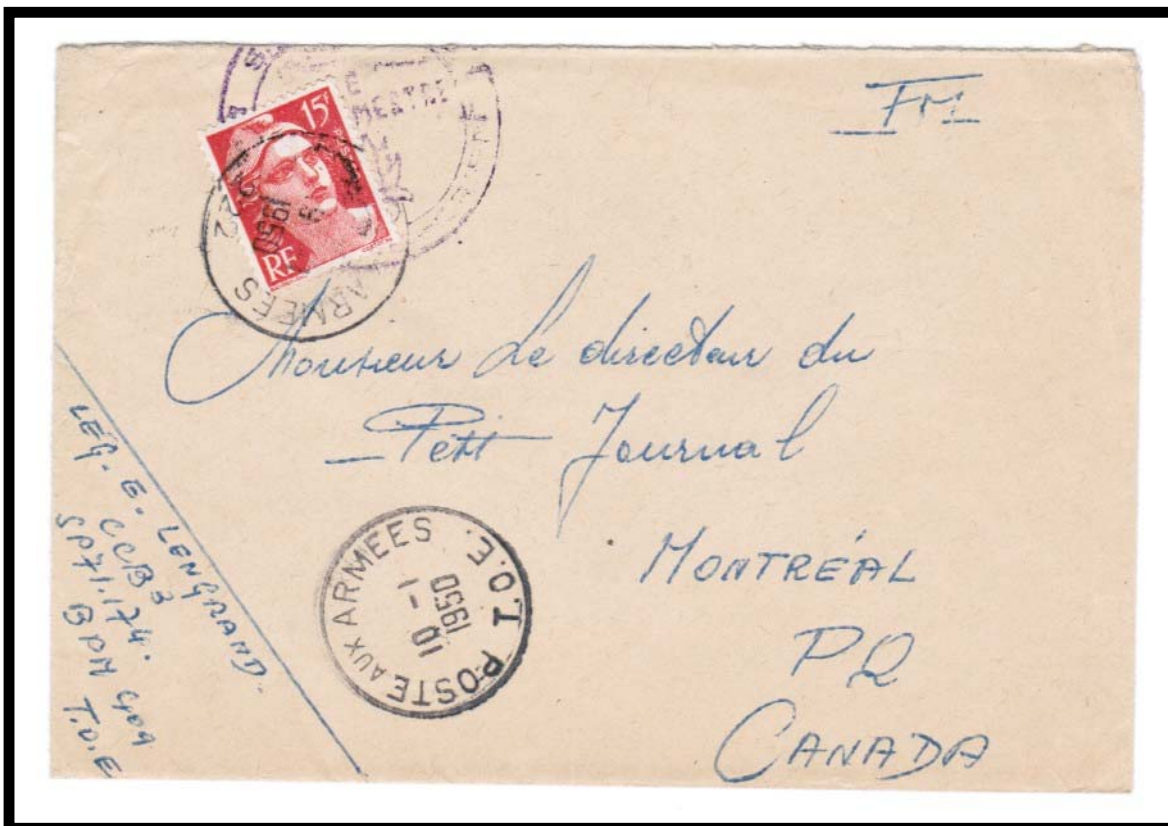 FM
15F
POSTES
RF
1950
ARMEES
Monsieur Le directeur du
Petit Journal
MONTRÉAL
PQ
CANADA
POSTE AUX ARMEES
T.O.E.
10 - 1
1950
LEG. E. LENGRAND.
CCB3
SP71.174.
BPM 409
T.O.E